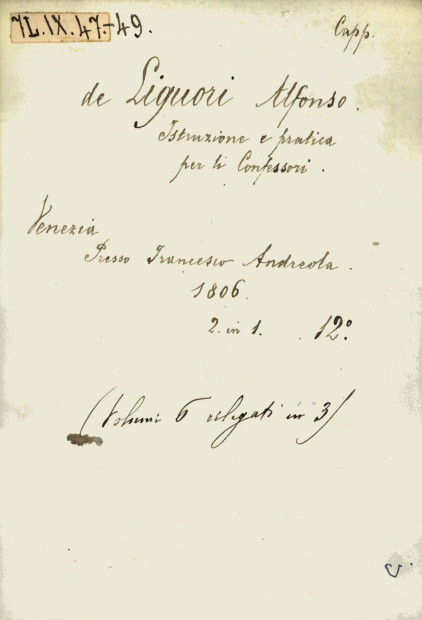 7L.IX.47.-49.
Capp.
de Liguori Alfonso.
Istruzione e pratica
per li Confessori.
Venezia
Presso Francesco Andreola.
1806.
2. in 1. 12.°
(Volumi 6 relegati in 3)